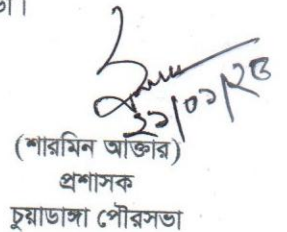 ২১/০১/২৬
(শারমিন আক্তার)
প্রশাসক
চুয়াডাঙ্গা পৌরসভা